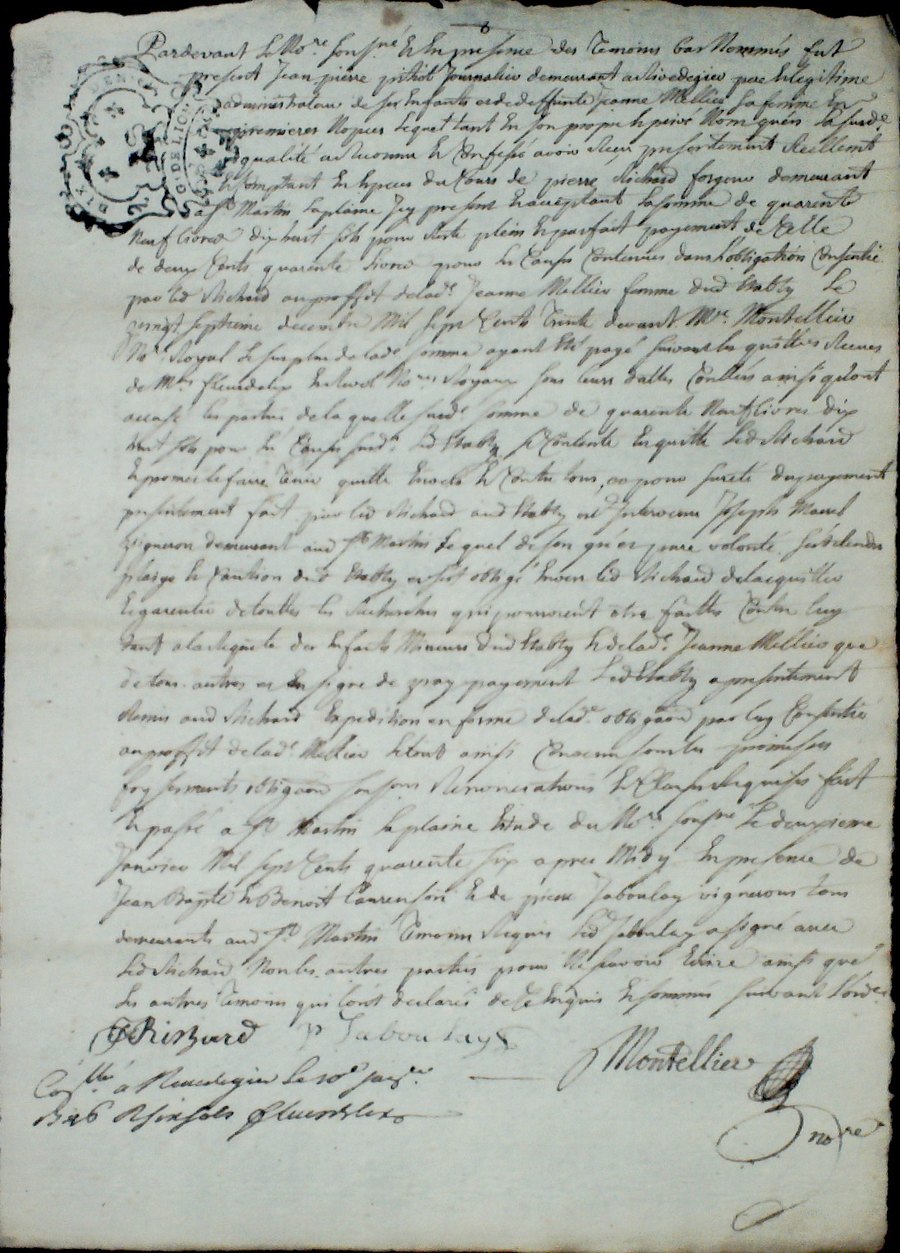 8
DIX DEN
G. DE LION
Pardevant Le No.re sous.né Et En presence des Temoins bas Nommés fut
present Jean pierre Journalier demeurant a Rivedegier pere Et legitime
administrateur de ses Enfants et de deffunte Jeanne Mellier sa femme En
premieres Nopces Lequel tant En son propre Et privé Nom qu'en sa susd.e
qualité a Reconnu Et Confessé avoir Receu presentement Reellemt
Et Comptant En Especes du Cours de pierre Richard forgeur demeurant
a St Martin Laplaine Icy present Et acceptant La somme de quarente
Neuf Livres dix huit sols pour Reste plein Et parfait payement de Celle
de deux Cents quarente Livres pour les Causes Contenües dans l'obligation Consentie
par led Richard au proffit de lad.e Jeanne Mellier femme dud Le
vingt septieme decembre Mil sept Cents Trente devant M.re Montellier
No.re Royal Le surplus de lad.e somme ayant Eté payé suivant les quittces Receues
de M.es fleurdelix Et No.res Royaux sous leurs dattes Conllées ainsi qu'ont
accusé les parties de laquelle susd.e somme de quarente Neuf Livres dix
huit sols pour les Causes susd.es Led se Contente En quitte Led Richard
Et promet le faire Tenir quitte Envers Et Contre tous, et pour sureté du payement
presentement fait par led Richard aud est Intervenu Joseph
vigneron demeurant aud St Martin Lequel de son gré et pure volonté s'est rendu
pleige Et Caution dud et s'est obligé Envers led Richard de l'acquitter
Et garentir de touttes les Recherches qui pourroient etre faittes Contre luy
tant a la Requete des Enfants Mineurs dud Et de lad.e Jeanne Mellier que
de tous autres et En signe de vray payement Led a presentement
Remis aud Richard Expedition en forme de lad.e obligaon par luy Consentie
au proffit de lad.e Mellier Le tout ainsi Convenu sous les promesses
foy serments obligaon Renonciations Et Clauses Requises fait
Et passé a St Martin Laplaine Etude du No.re sous.né Le deuxieme
Janvier Mil sept Cents quarente six apres Midy En presence de
Jean Bapte Et Benoist Laurenson Et de pierre Jaboulay vignerons tous
demeurants aud St Martin Temoins Requis Led Jaboulay a signé avec
Led Richard Non les autres parties pour Ne savoir Ecrire ainsi que
Les autres Temoins qui l'ont declaré de Ce Enquis Et sommés suivant l'orde
P Jaboulay
Montellier
Conllé a Rivedegier Le 10e janer
R six sols fleurdelix
no.re